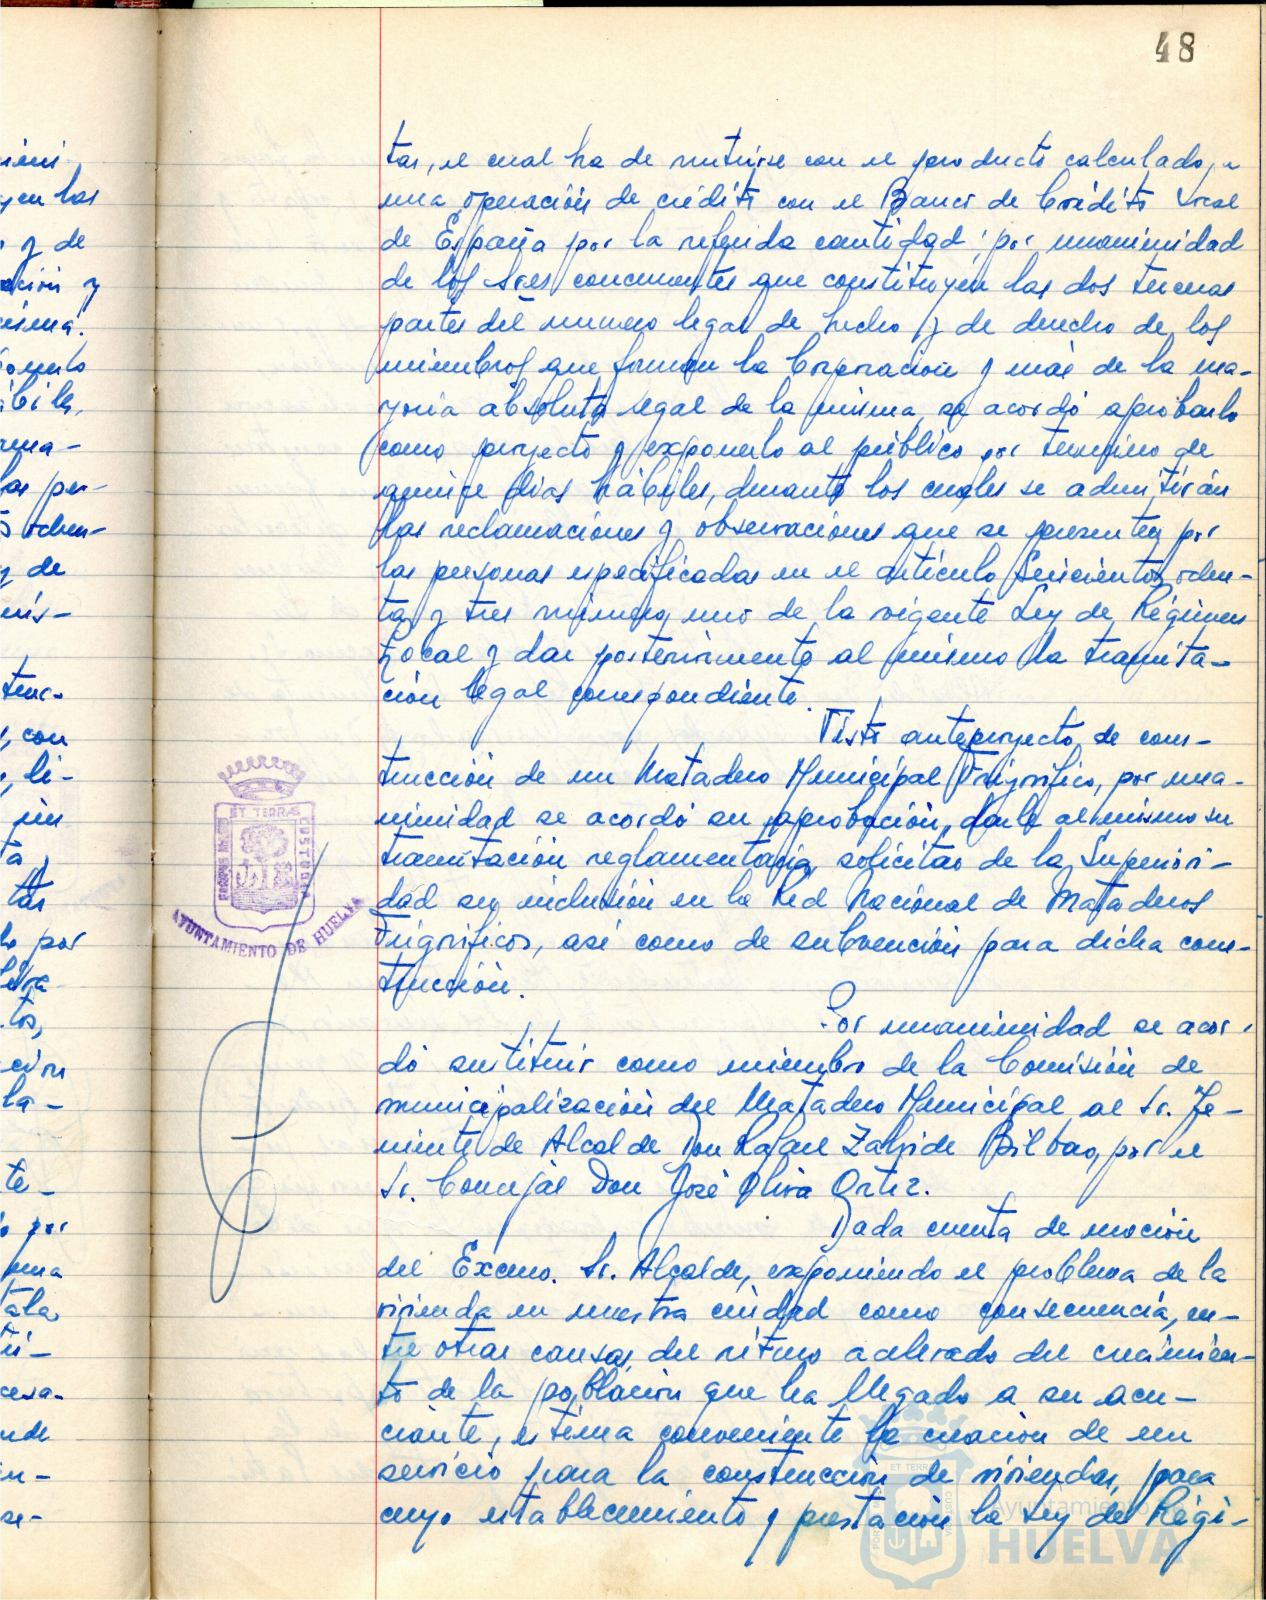 48
tas, el cual ha de nutirse con el producto calculado, a
una operación de crédito con el Banco de Crédito Local
de España por la referida cantidad; por unanimidad
de los sres concurrentes que constituyen las dos terceras
partes del numero legal de hecho y de derecho de los
miembros que forman la Corporación y más de la ma-
yoria absoluta legal de la misma, se acordó aprobarlo
como proyecto y exponerlo al público por termino de
quince dias hábiles, durante los cuales se admitirán
las reclamaciones y observaciones que se presenten por
las personas especificadas en el artículo Seiscientos ochen-
ta y tres número uno de la vigente Ley de Régimen
Local y dar posteriormente al mismo la tramita-
ción legal correspondiente.
Visto anteproyecto de cons-
trucción de un Matadero Municipal Frigorífico, por una-
nimidad se acordó su aprobación, darle al mismo su
tramitación reglamentaria, solicitar de la Superiori-
dad su inclusión en la Red Nacional de Mataderos
Frigorificos, así como de subvención para dicha cons-
trucción.
Por unanimidad se acor-
dó sustituir como miembro de la Comisión de
municipalización del Matadero Municipal al Sr. Te-
niente de Alcalde Don Rafael Zalvide Bilbao, por el
Sr. Concejal Don José Oliva Ortiz.
Dada cuenta de moción
del Excmo. Sr. Alcalde, exponiendo el problema de la
vivienda en nuestra ciudad como consecuencia, en-
tre otras causas, del ritmo acelerado del crecimien-
to de la población que ha llegado a su acu-
ciante, estima conveniente la creación de un
servicio para la construcción de viviendas, para
cuyo establecimiento y prestación la Ley de Régi-
ET TERRAS CUSTODIA
PORTUS MARIS
AYUNTAMIENTO DE HUELVA
Ayuntamiento de
HUELVA